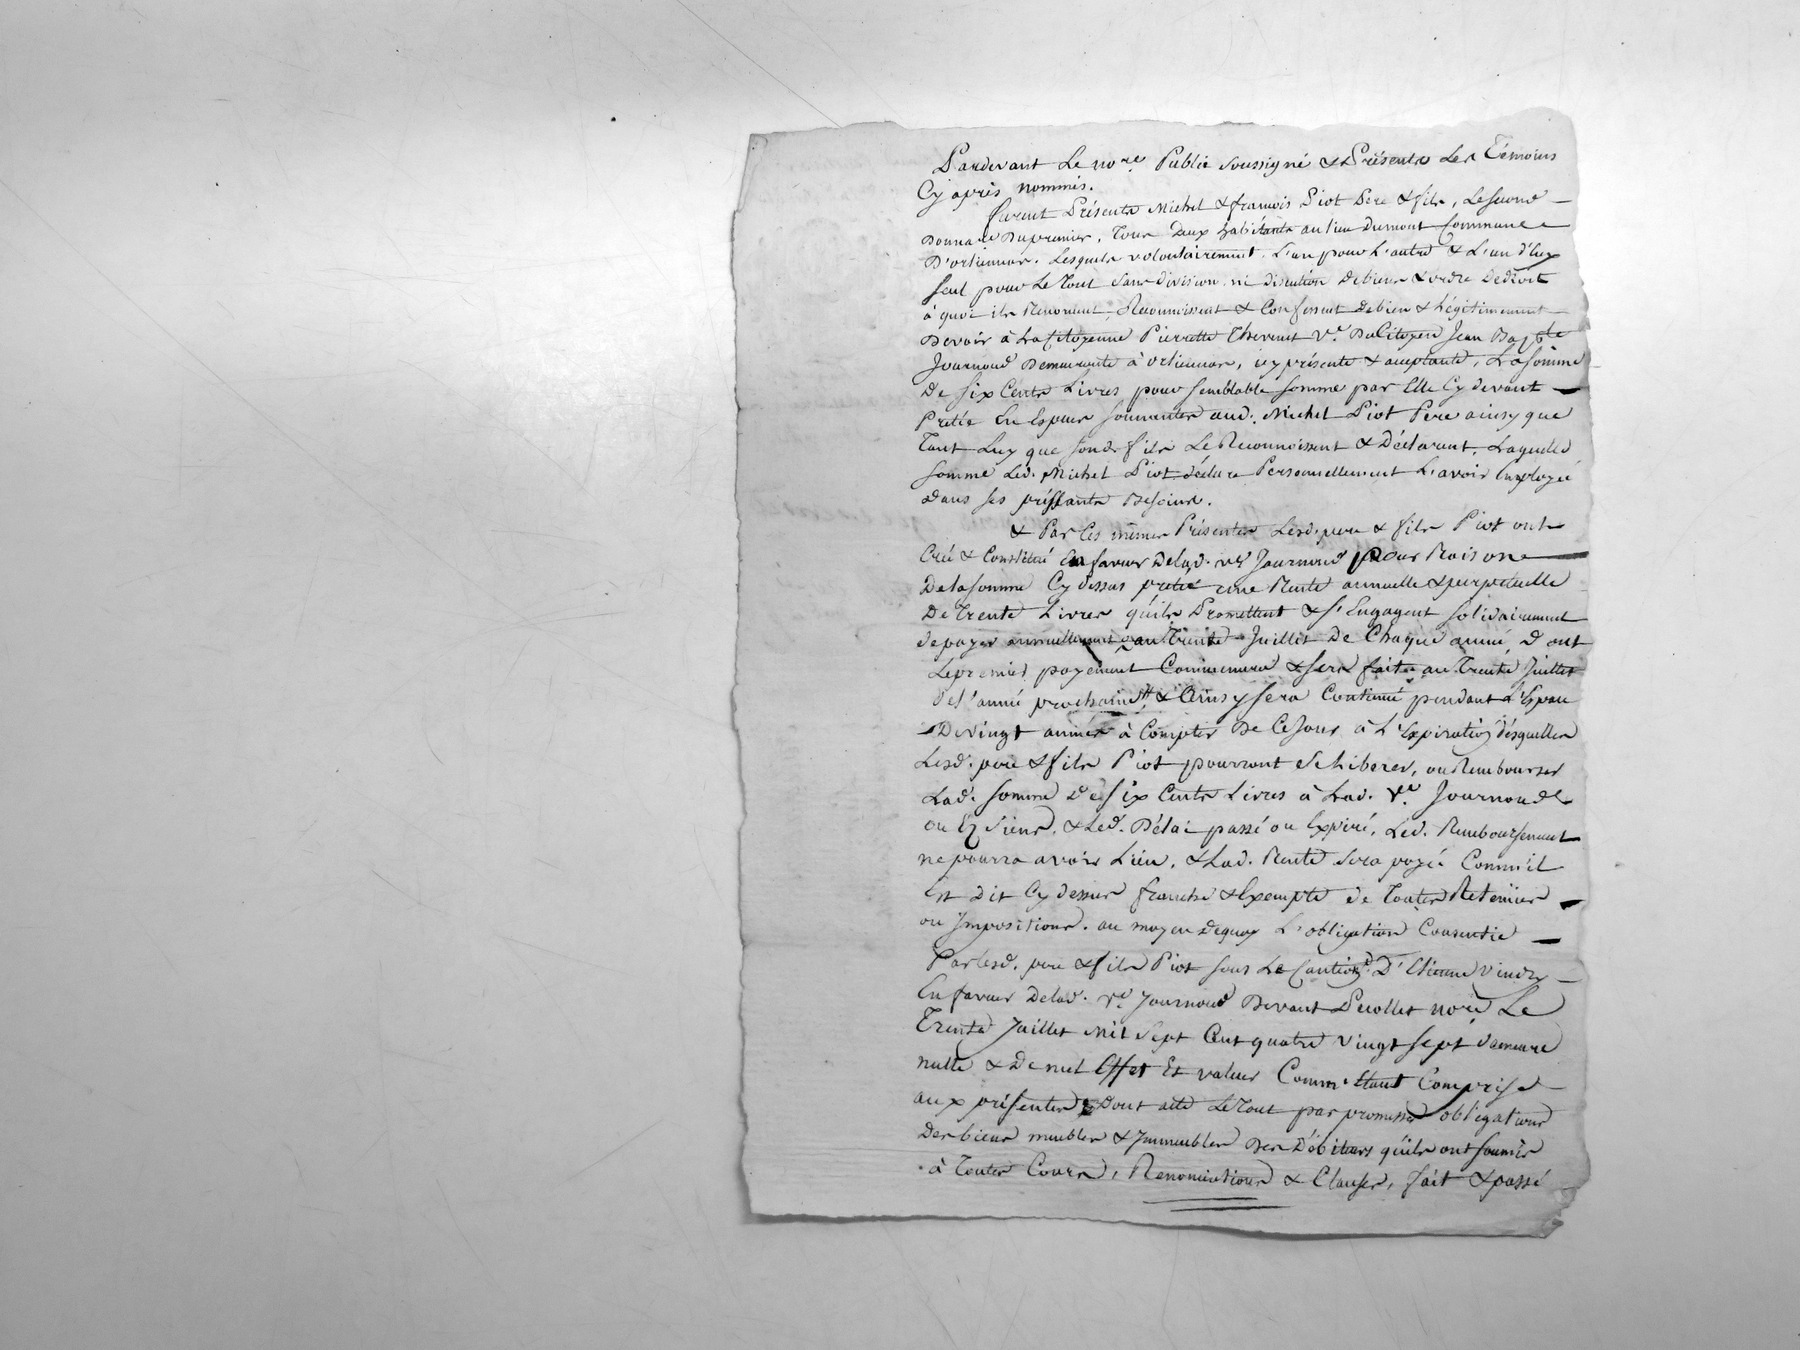 Pardevant Le no.re Public soussigné & Présents Les Témoins
Cy après nommés.
furent Présents Michel & francois Piot Pere & fils, Le second
Donnataire Du premier, Tous Deux habitants au lieu Dumont Commune
D'orliennas. Lesquels volontairement. L'un pour L'autre & L'un d'Eux
seul pour Le Tout sans division ni discution De biens & ordre De droit
à quoi ils Renoncent, Reconnoissent & Confessent De bien & Légitimement
Devoir à La Citoyenne Pierrette Thevenet V.e Du Citoyen Jean Bap.te
Journoud Demeurante à orliennas, icy présente & acceptante, La somme
De six Cents Livres pour semblable somme par Elle Cy devant
Pretée En Espèces sonnantes aud. Michel Piot Pere ainsy que
Tant Luy que sond. fils Le Reconnoissent & Déclarent, Laquelle
somme Led. Michel Piot déclare Personnellement L'avoir Employée
dans ses préssants Besoins.
& Par Ces mêmes Présentes Lesd. pere & fils Piot ont
Créé & Constitué En faveur De lad. v.e Journoud pour Raison
De la somme Cy dessus pretée une Rente annuelle & perpetuelle
De Trente Livres qu'ils Promettent & s'Engagent solidairement
de payer annuellement au Trente Juillet De Chaque année, dont
Le premier payement Commencera & sera fait au Trente Juillet
De L'année prochaine & Ainsy sera Continué pendant L'Espace
De vingt années à Compter De Ce Jour à L'Expiration désquelles
Lesd. pere & fils Piot pourront se Liberer, ou Rembourser
Lad. somme De six Cents Livres à Lad. V.e Journoud
ou Ez siens, & Led. Délai passé ou Expiré, Led. Remboursement
ne pourra avoir Lieu, & Lad. Rente sera payée Comm'il
Est dit Cy dessus franche & Exempte de Toutes Retenües
ou Impositions. au moyen Dequoy L'obligation Consentie
Par lesd. pere & fils Piot sous Le Caution.t D'Etienne Vindry
En faveur De lad. V.e Journoud Devant Decollet no.re Le
Trente Juillet Mil sept Cent quatre vingt sept demeure
nulle & De nul Effet Et valeur Comm'Etant Comprise
aux présentes Dont acte Le Tout par promesses obligations
Des biens meubles & Immeubles Des Débiteurs qu'ils ont soumis
à Toutes Cours, Renonciations & Clauses, fait & passé